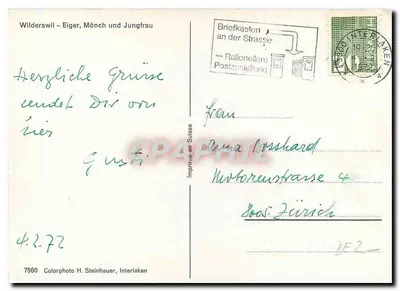 Wilderswil – Eiger, Mönch und Jungfrau
Briefkasten
an der Strasse
— Rationellere
Postzustellung
3800 INTERLAKEN
Herzliche Grüsse
sendet Dir von
hier
Gusti
4.2.72
Imprimé en Suisse
Frau
Anna Bosshard
Motorenstrasse 4
8005 Zürich
7560 Colorphoto H. Steinhauer, Interlaken